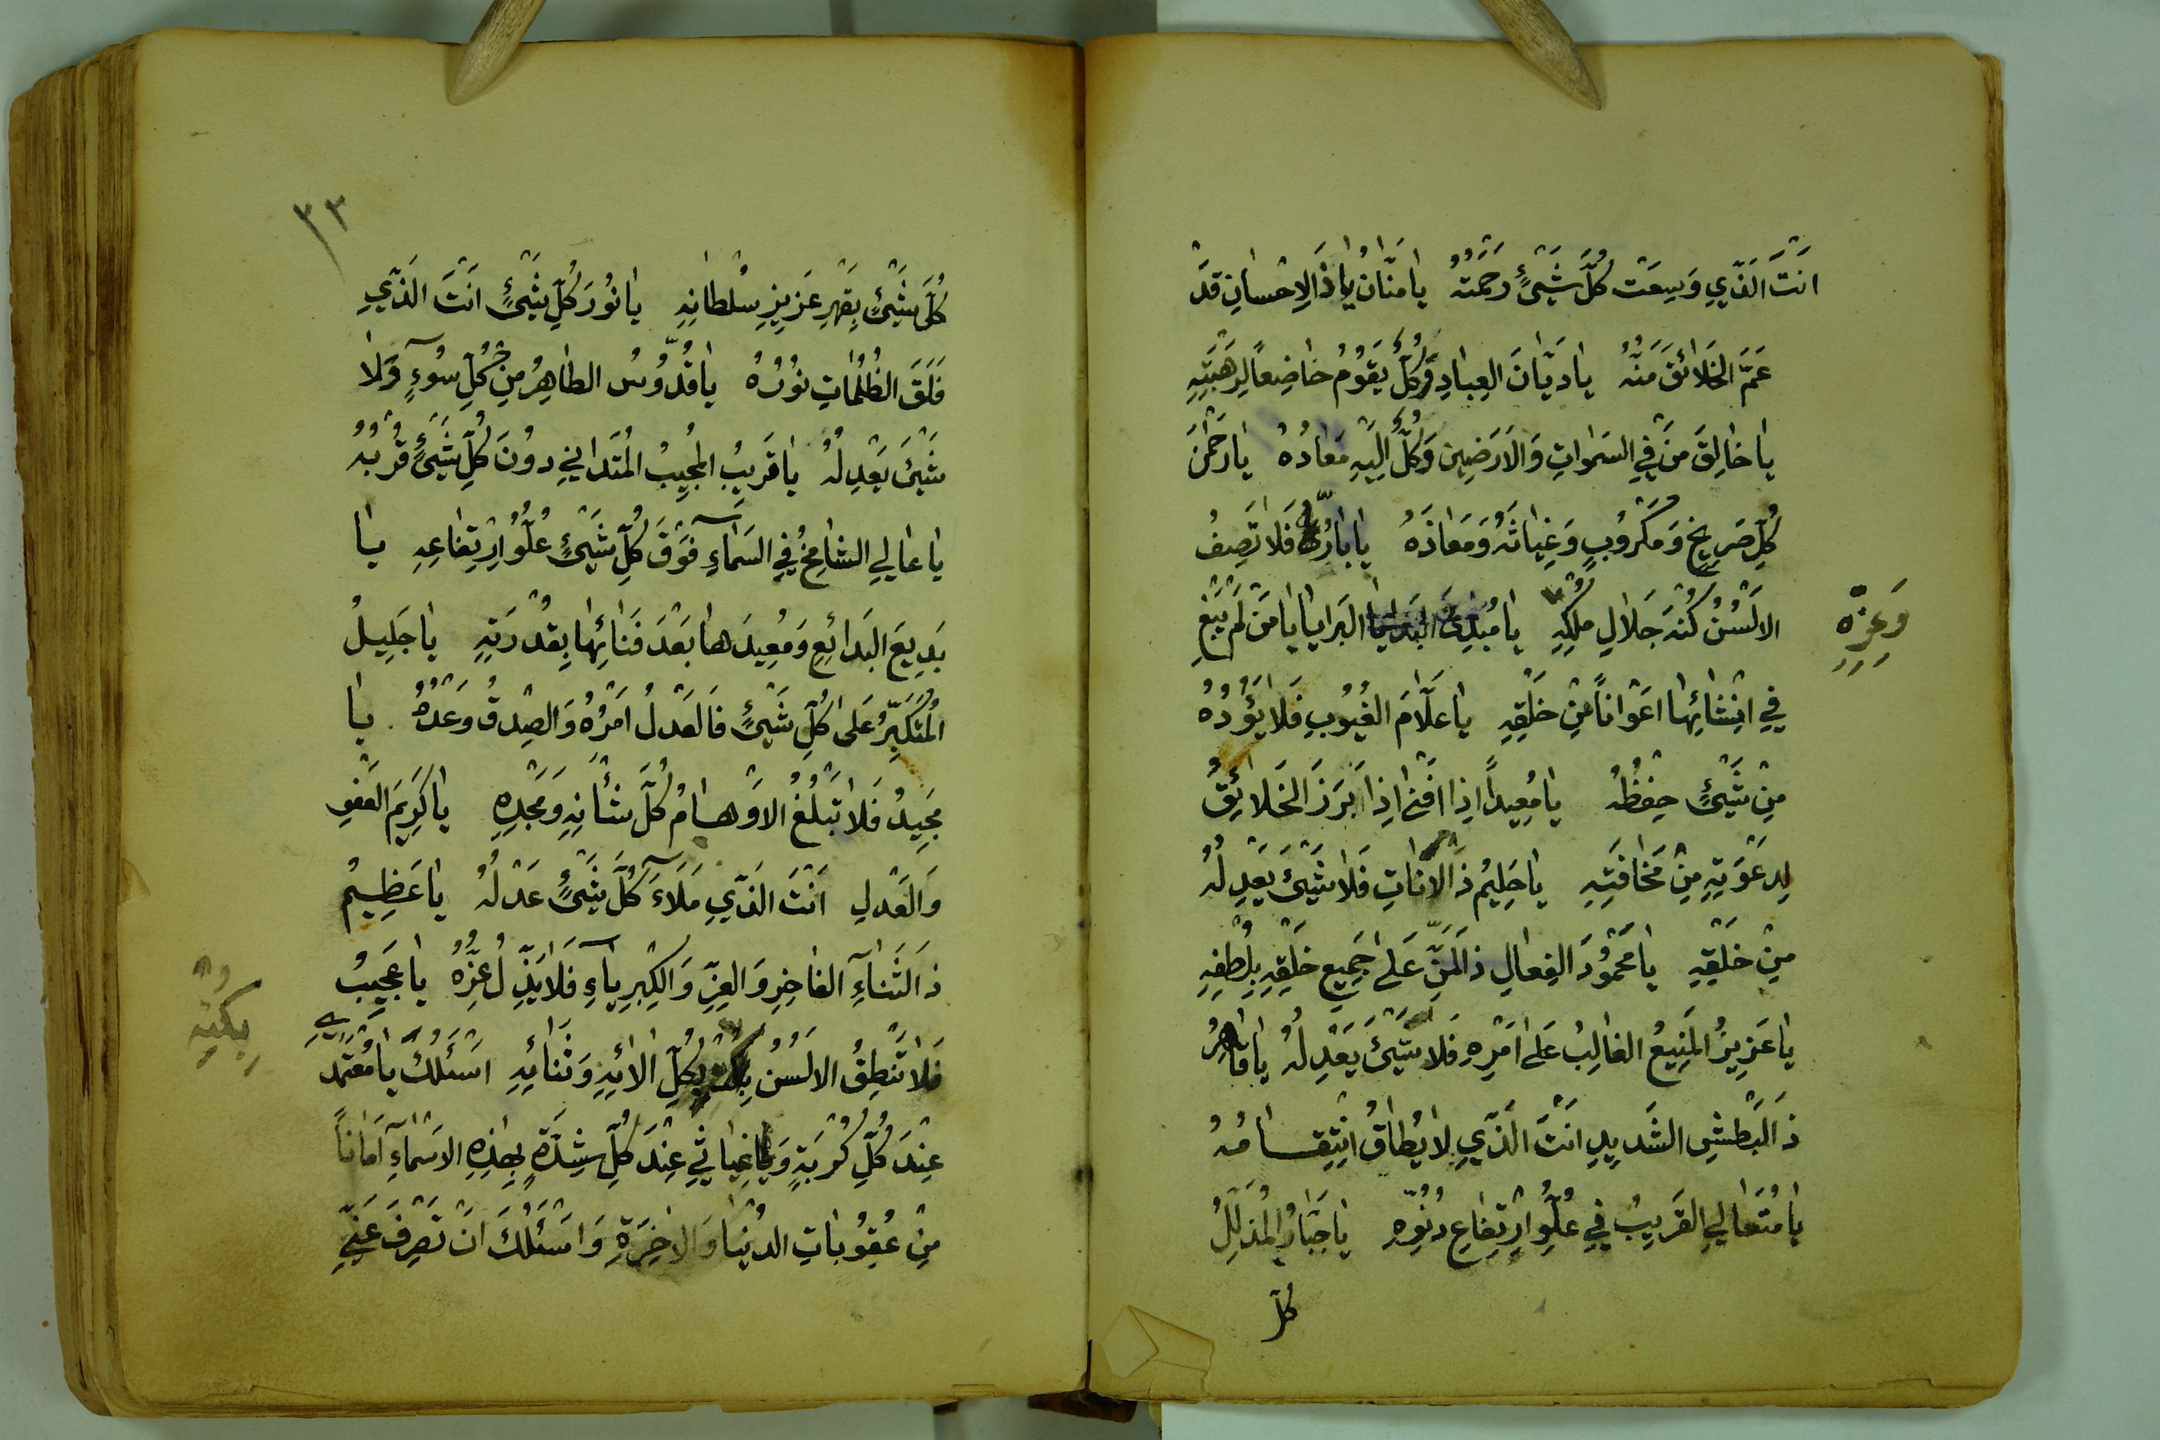 اَنْتَ الَّذَي وَسِعَتْ كُلَّ شَيْئٍ رَحْمَتُهُ يا مَنّانُ يا ذَا لاِحْسانِ قَدْ
عَمَّ الخَلائِقَ مَنُّهُ يا دَيّانَ العِبادِ وَكُلٌّ يَقُومُ خاضِعاً لِرَهْبَتِهِ
يا خالِقَ مَنْ فِي السَمواتِ وَالاَرَضِين وَكُلٌّ اِلَيْهِ مَعادُهُ يا رَحْمنَ
كُلِّ صَرِيخٍ وَمَكْرُوبٍ وَغِياثَهُ وَمَعاذَهُ يا بارُّ فَلا تَصِفُ
الاَلْسُنُ كُنْهَ جَلالِ مُلْكِهِ يا مُبْدِئَ البَرايا يا مَنْ لَمْ يَبْغِ
وَعِزِّهِ
فِي اِنْشائِها اَعْواناً مِنْ خَلْقِهِ يا عَلّامَ الغُيُوبِ فَلا يَؤُدُهُ
مِنْ شَيْئٍ حِفْظُهُ يا مُعِيداً اِذا اَفْنى اِذا بَرَزَ الخَلائِقُ
لِدَعْوَتِهِ مِنْ مَخافَتِهِ يا حَلِيمُ ذَا لاَناتِ فَلا شَيْئَ يَعْدِلُهُ
مِنْ خَلْقِهِ يا مَحْمُودَ الفِعالِ ذَا لَمَنِّ عَلى جَمِيعِ خَلْقِهِ بِلُطْفِهِ
يا عَزِيزُ المَنِيعُ الغالِبُ عَلى اَمْرِهِ فَلا شَيْئَ يَعْدِلُهُ يا قاهِرُ
ذَا لْبَطْشِ الشَدِيدِ اَنْتَ الَّذَي لا يُطاقُ انْتِقامُهُ
يا مُتَعالِي القَرِيبُ فِي عُلُوِّ ارْتِفاعِ دُنُوِّهِ يا جَبّارُ المُذَلِّلُ
كلّ
٣٣
كُلَّ شَيْئٍ بِقَهْرِ عَزِيزِ سُلْطانِهِ يا نُورَ كُلِّ شَيْئٍ اَنْتَ الَّذَي
فَلَقَ الظُلُماتِ نُورُهُ يا قُدُّوسُ الطاهِرُ مِنْ كُلِّ سُوءٍ وَلا
شَيْئَ يَعْدِلُهُ يا قَرِيبُ المُجِيبُ المُتَدانِي دونَ كُلِّ شَيْئٍ قُرْبُهُ
يا عالِي الشامِخُ فِي السَماءِ فَوْقَ كُلِّ شَيْئٍ عُلُوُّ ارْتِفاعِهِ يا
بَدِيعَ البَدائِعِ وَمُعِيدَها بَعْدَ فَنائِها بِقُدْرَتِهِ يا جَلِيلُ
المُتَكَبِّرُ عَلى كُلِّ شَيْئٍ فَالعَدْلُ اَمْرُهُ وَالصِدْقُ وَعْدُهُ يا
مَجِيدُ فَلا تَبْلُغُ الاَوْهامُ كُلَّ شَأْنِهِ وَمَجْدِهِ يا كَرِيمَ العَفْوِ
وَالعَدْلِ اَنْتَ الَّذَي مَلَاءَ كُلَّ شَيْئٍ عَدْلُهُ يا عَظِيمُ
ذَا لثَناءِ الفاخِرِ وَالعِزِّ وَالكِبْرِياءِ فَلا يَذِلُّ عِزُّهُ يا عَجِيبُ
فَلا تَنْطِقُ الاَلْسُنُ بِكُلِّ الائِهِ وَثَنائِهِ اَسْئَلُكَ يا مُعْتَمَدِي
عِنْدَ كُلِّ كُرْبَةٍ وَيا غِياثِي عِنْدَ كُلِّ شِدَّةٍ بِهذِهِ الاَسْماءِ اَماناً
مِنْ عُقُوباتِ الدُنْيا وَالاخِرَةِ وَاَسْئَلُكَ اَنْ تَصْرِفَ عَنِّي